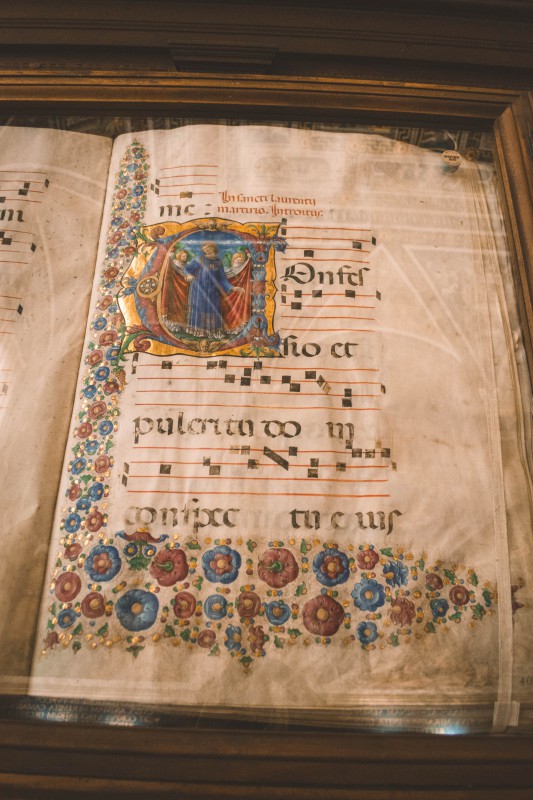 me :
In sancti laurentij
martirio. Introitus.
COnfes
sio et
pulcritu do in
conspec tu e ius